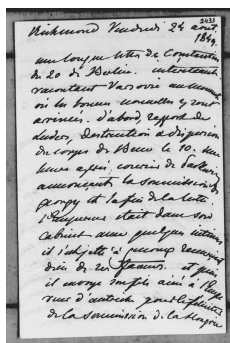 2433
Richmond Vendredi 24 août
1849.
une longue lettre de Constantin
du 20 de Berlin. intéressante
racontant Varsovie au moment
où les bonnes nouvelles y sont
arrivées. d'abord, rapport de
Luders, destruction & dispersion
du corps de Bem le 10. une
heure après, courrier de
annonçant la soumission de
Georgy et la fin de la lutte.
l'Empereur était dans son
cabinet avec quelques intimes
il s'est jetté à genoux
Dieu et puis
il envoye son fils ainé à l'Empe
reur d'autriche pour le féliciter
de la soumission de la Hongrie